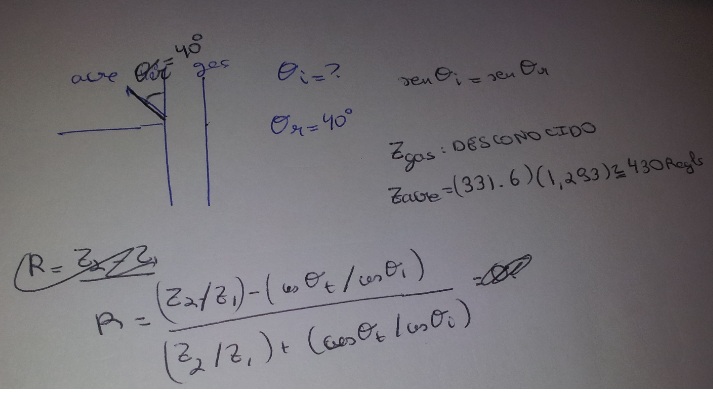 θr=40°
aire gas
θi=?
θr=40°
senθi=senθr
Zgas: DESCONOCIDO
Zaire=(331.6)(1,293)≅430Rayls
R= Z2/Z1
R=(Z2/Z1)-(cosθt/cosθi)=
(Z2/Z1)+(cosθt/cosθi)